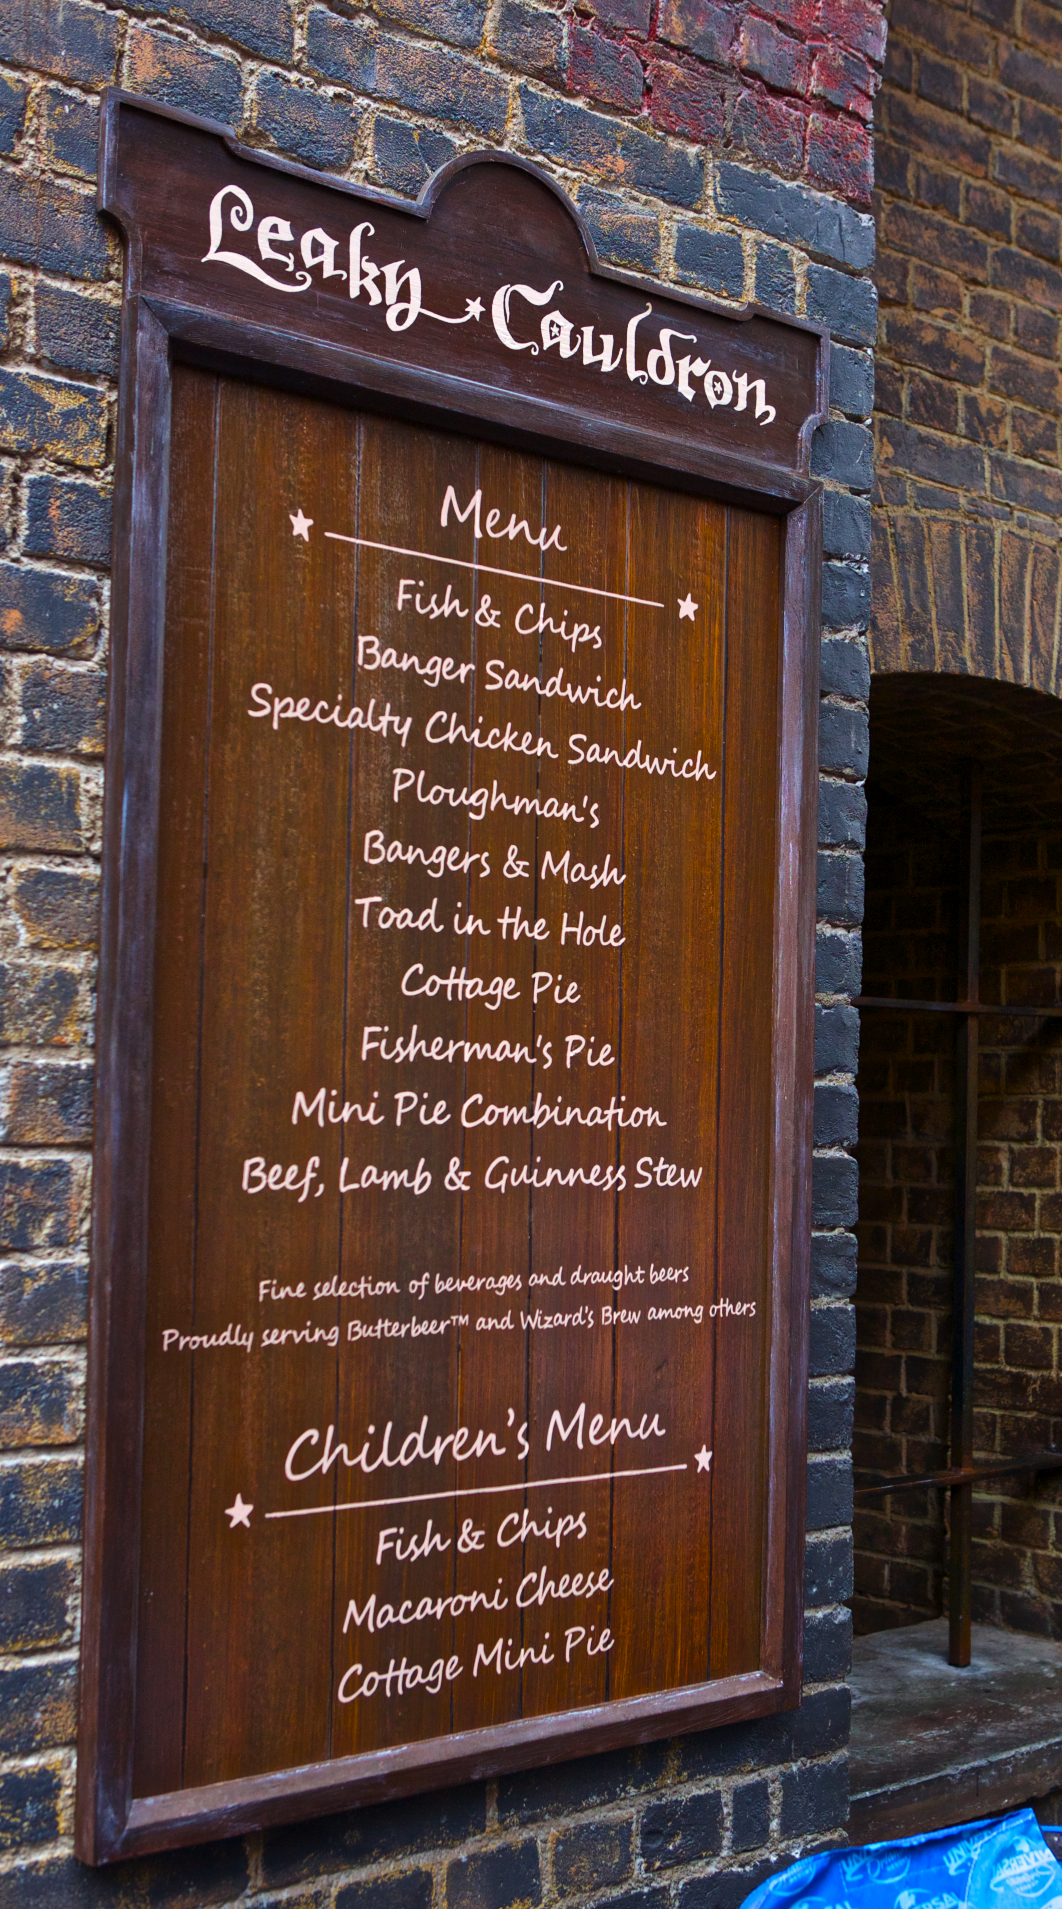 Leaky Cauldron
Menu
Fish & Chips
Banger Sandwich
Specialty Chicken Sandwich
Ploughman's
Bangers & Mash
Toad in the Hole
Cottage Pie
Fisherman's Pie
Mini Pie Combination
Beef, Lamb & Guinness Stew
Fine selection of beverages and draught beers
Proudly serving Butterbeer™ and Wizard's Brew among others
Children's Menu
Fish & Chips
Macaroni Cheese
Cottage Mini Pie